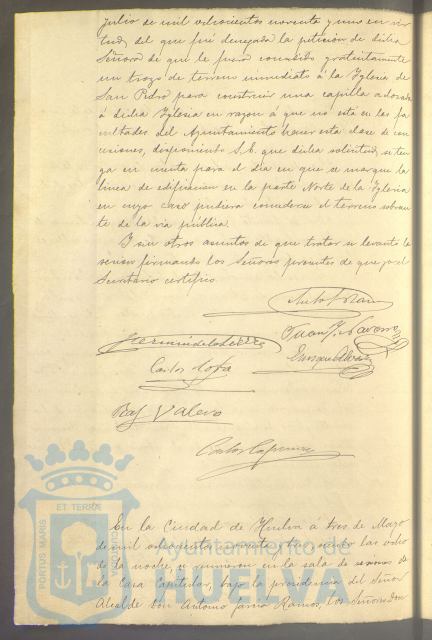 julio de mil ochocientos noventa y uno en vir
tud del que fué denegada la petición de dicha
Señora de que le fuera concedido gratuitamente
un trozo de terreno inmediato á la Iglesia de
San Pedro para construir una capilla adosada
á dicha Iglesia en razon á que no está en las fa
cultades del Ayuntamiento hacer esta clase de con
cesiones, disponiendo S.E. que dicha solicitud se ten
ga en cuenta para el dia en que se marque la
linea de edificacion en la parte Norte de la Iglesia
en cuyo caso pudiera concederse el terreno sobran
te de la via pública.
Y sin otros asuntos de que tratar se levantó la
sesion firmando los Señores presentes de que yo el
Secretario certifico
Juan J. Navarro
Carlos
Raf Valero
Carlos
En la Ciudad de Huelva á tres de Mayo
de mil ochocientos noventa siendo las ocho
de la noche, se reunieron en la sala de sesiones de
la Casa Capitular, bajo la presidencia del Señor
Alcalde Don Antonio Garcia Ramos, los Señores Don
PORTUS MARIS ET TERRAE CUSTODIA
Ayuntamiento de
HUELVA